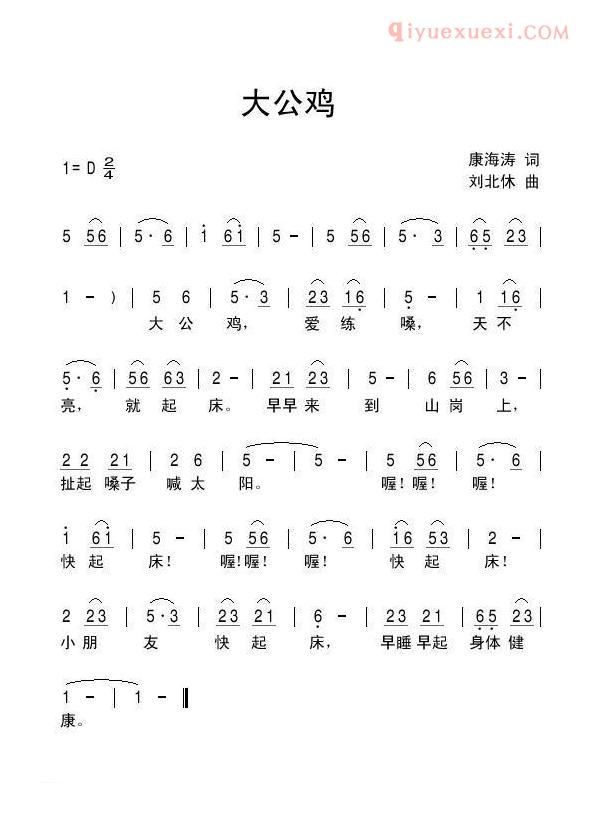 qiyuexuexi.COM
大公鸡
1=D 2/4
康海涛 词
刘北休 曲
5 56 | 5· 6 | i 6i | 5 - | 5 56 | 5· 3 | 65 23 |
1 - ) | 5 6 | 5· 3 | 23 16 | 5 - | 1 16 |
大公鸡，爱练嗓，天不
5· 6 | 56 63 | 2 - | 21 23 | 5 - | 6 56 | 3 - |
亮，就起床。早早来到山岗上，
22 21 | 2 6 | 5 - | 5 - | 5 56 | 5· 6 |
扯起嗓子喊太阳。喔！喔！喔！
i 6i | 5 - | 5 56 | 5· 6 | i6 53 | 2 - |
快起床！喔！喔！喔！快起床！
2 23 | 5· 3 | 23 21 | 6 - | 23 21 | 65 23 |
小朋友快起床，早睡早起身体健
1 - | 1 - ‖
康。